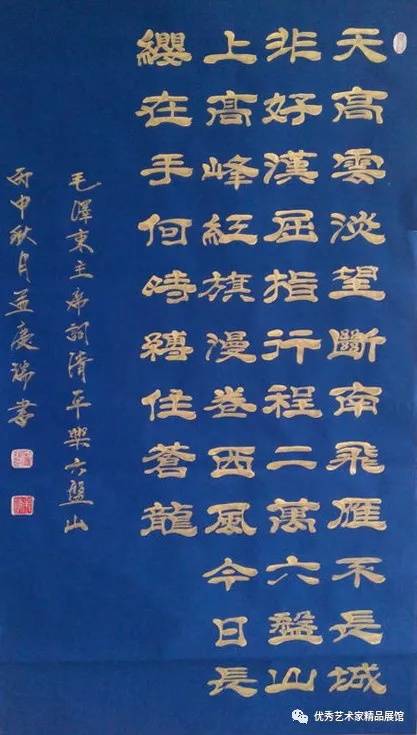 天高雲淡望斷南飛雁不長城
非好漢屈指行程二萬六盤山
上高峰紅旗漫卷西風今日長
纓在手何時縛住蒼龍
毛澤東主席詞清平樂六盤山
丙申秋月孟慶瑞書
优秀艺术家精品展馆